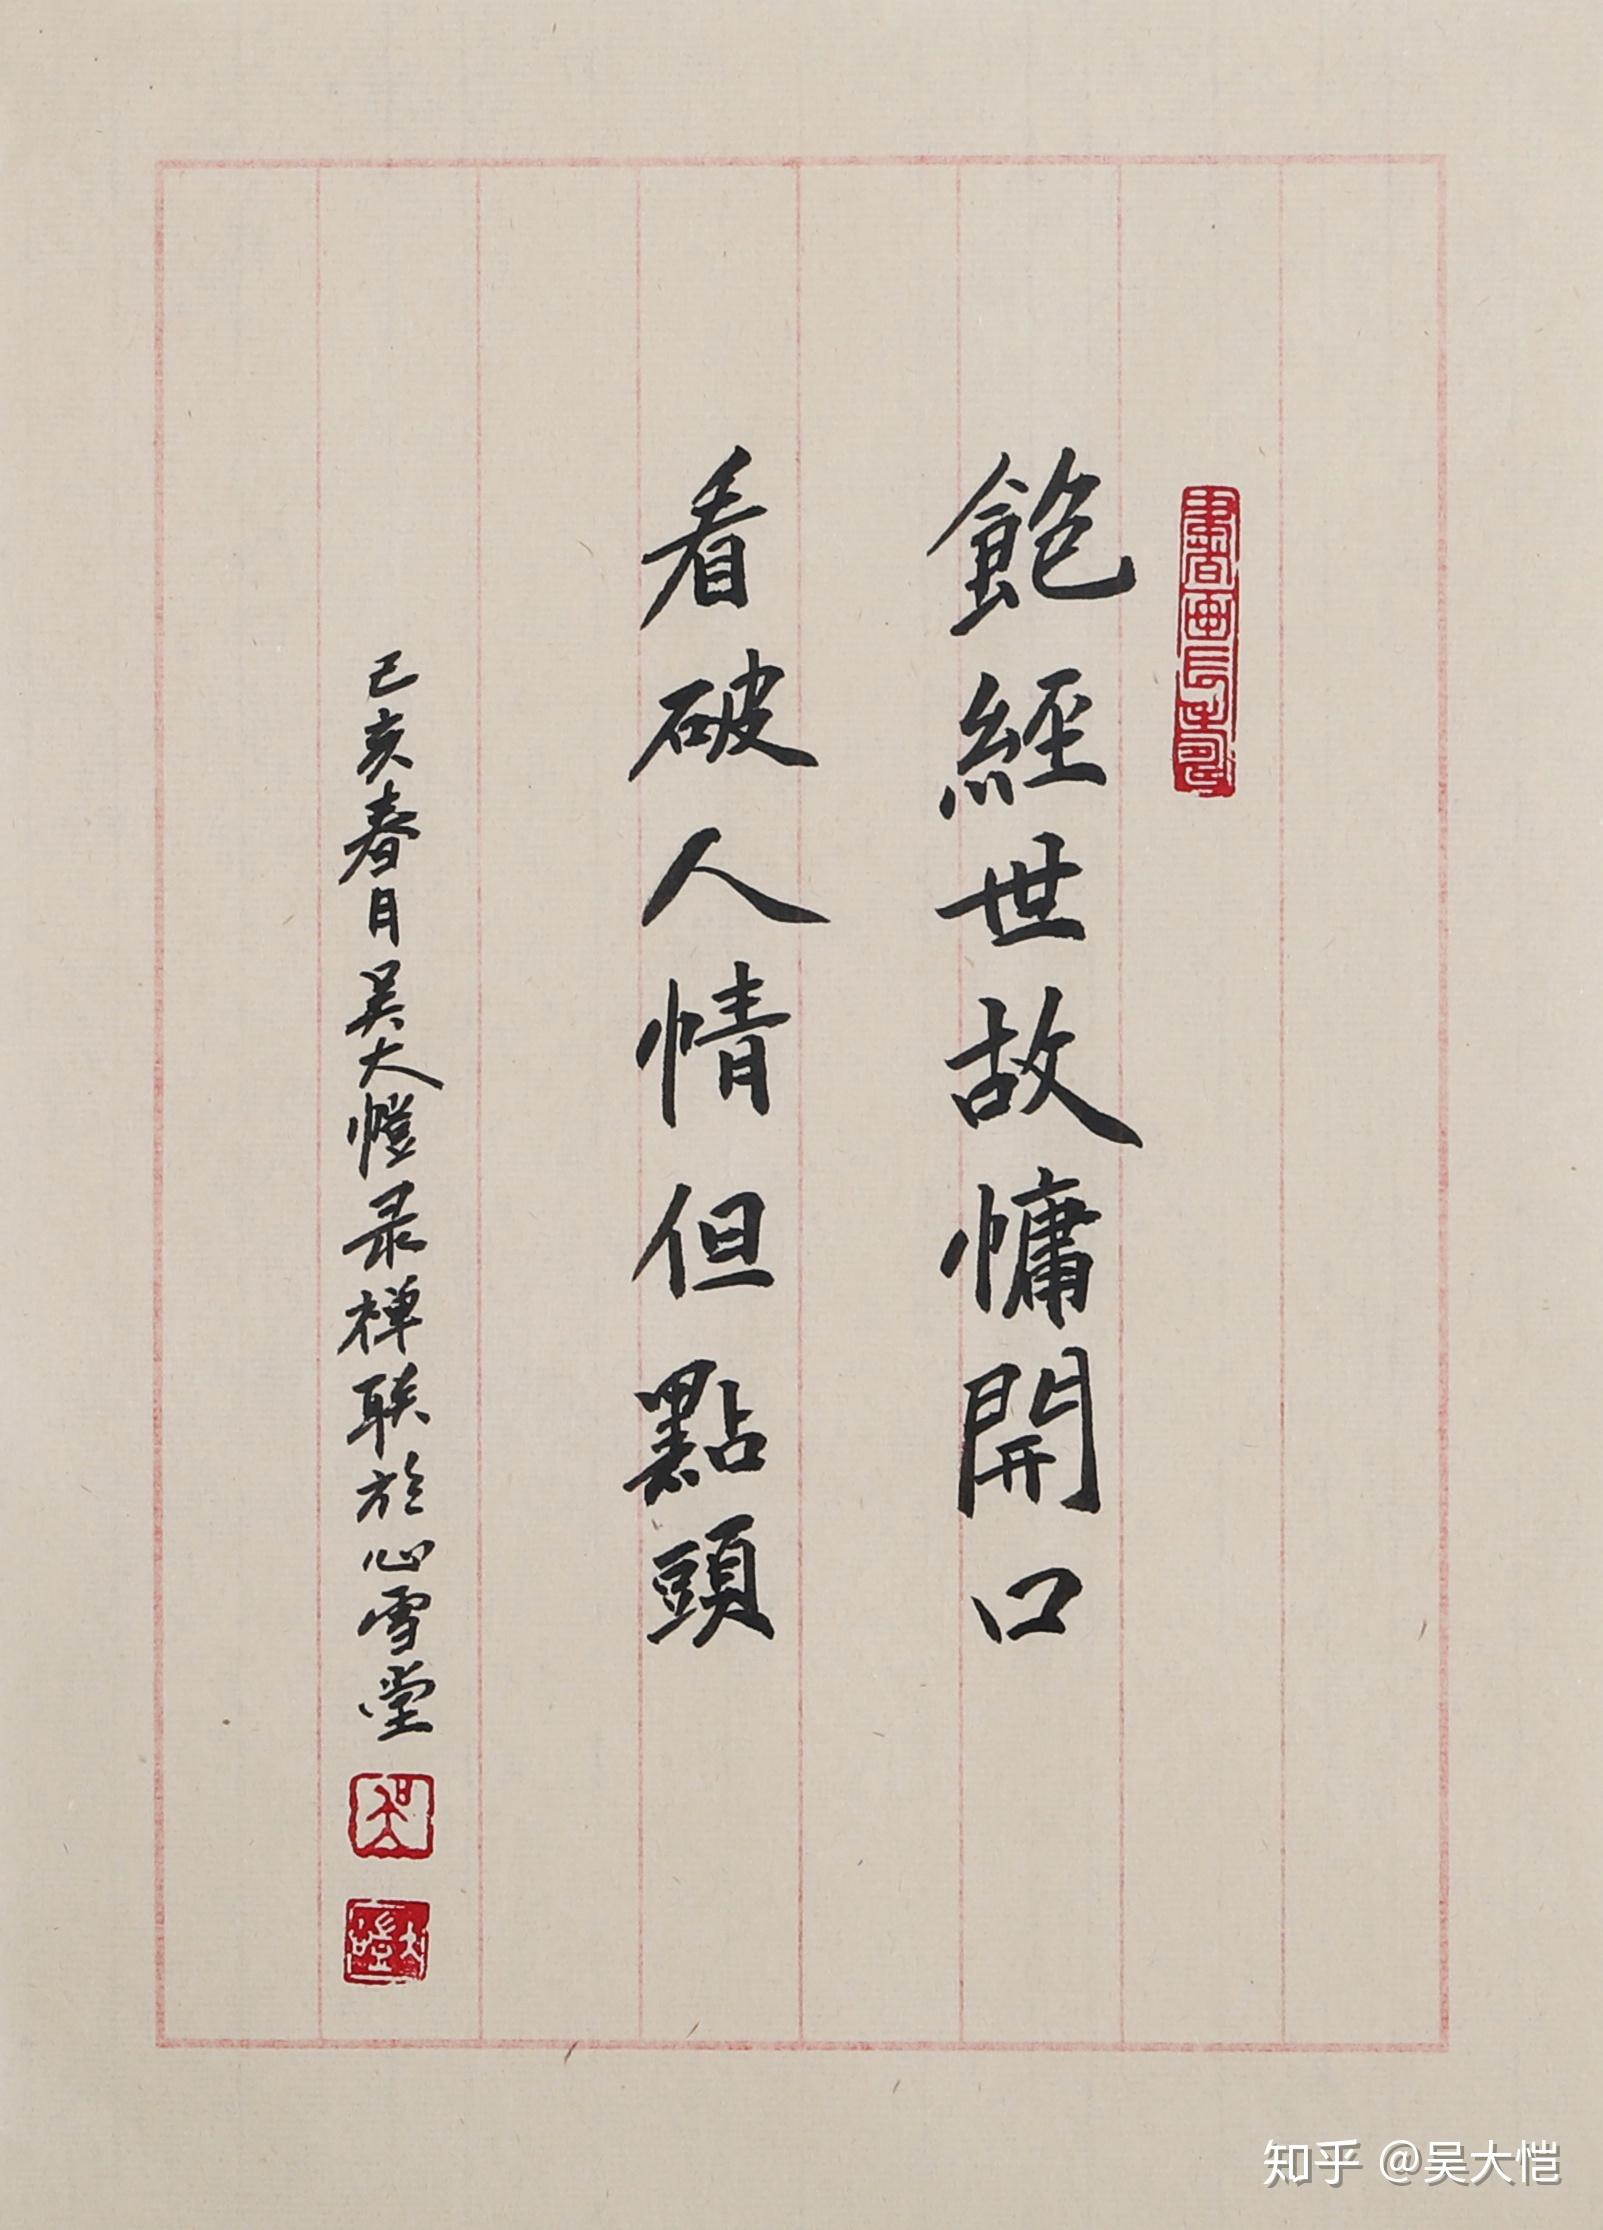 飽經世故慵開口
看破人情但點頭
己亥春月吴大愷录禅联於心雪堂
知乎 @吴大恺